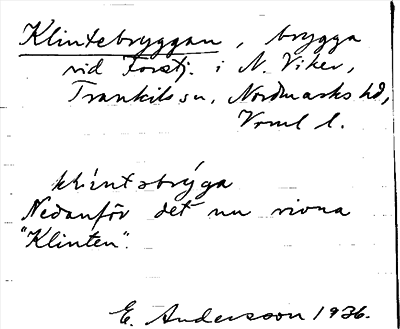 Klintebryggan, brygga
vid Forstj. i N. Viker,
Trankils sn, Nordmarks hd,
Vrml l.
klíntəbrýga
Nedanför det nu rivna
"Klinten".
E. Andersson 1936.